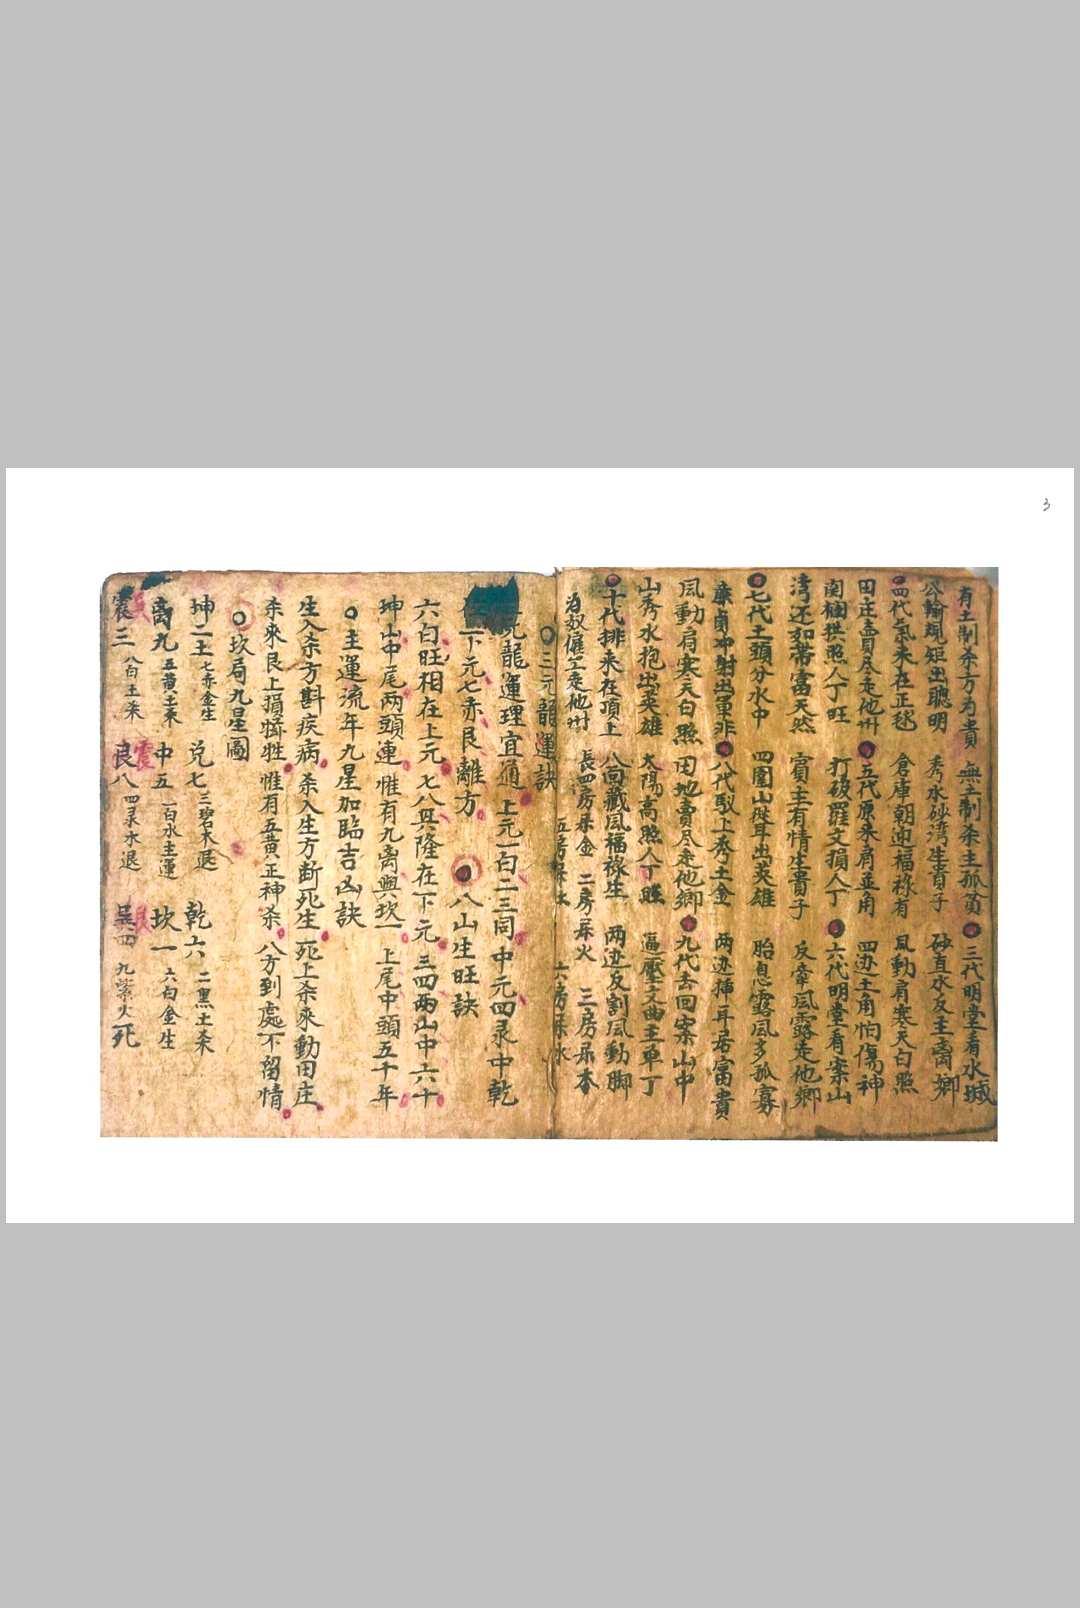 3
有土制杀方为貴 無土制杀主孤貧 三代明堂看水城
公輸規矩出聰明 秀水砂湾生貴子 砂直水反主离鄉
四代氣未在正穴 倉庫朝迎福祿有 風動肩寒天白照
田庄賣尽走他州 五代原来肩並肩 四边土角怕傷神
関栏拱照人丁旺 打破羅文損人丁 六代明堂看案山
湾还如帶富天然 賓主有情生貴子 反章風露走他鄉
七代土頭分水中 四圍山聳耳出英雄 胎息露風多孤寡
冲射出軍非 八代馭上秀土金 两边揷耳居富貴
風動肩寒天白照 田地賣尽走他鄉 九代去回案山中
山秀水抱出英雄 太陽高照人丁旺 逼壓文曲主单丁
十代排来在頂上 八向藏風福祿生 两边反割風動脚
为奴僱工走他州 長四房属金 二房属火 三房属木
五房属土 六房属水
三元龍運訣
元龍運理宜通 上元一百二三同 中元四录中乾
下元七赤艮離方 八山生旺訣
六白旺相在上元 七八興隆在下元 三四两山中六十
珅山中尾两頭連 惟有九离與坎一 上尾中頭五千年
主運流年九星加臨吉凶訣
生入杀方斟疾病 杀入生方断死生 死上杀來動田庄
杀來艮上損犧牲 惟有五黄正神杀 八方到處不留情
坎局九星圖
珅二土 七赤金生 兑七 三碧木退 乾六 二黑土杀
离九 五黄土杀 中五 一白水主運 坎一 六白金生
震三 八白土杀 艮八 四录木退 巽四 九紫火死